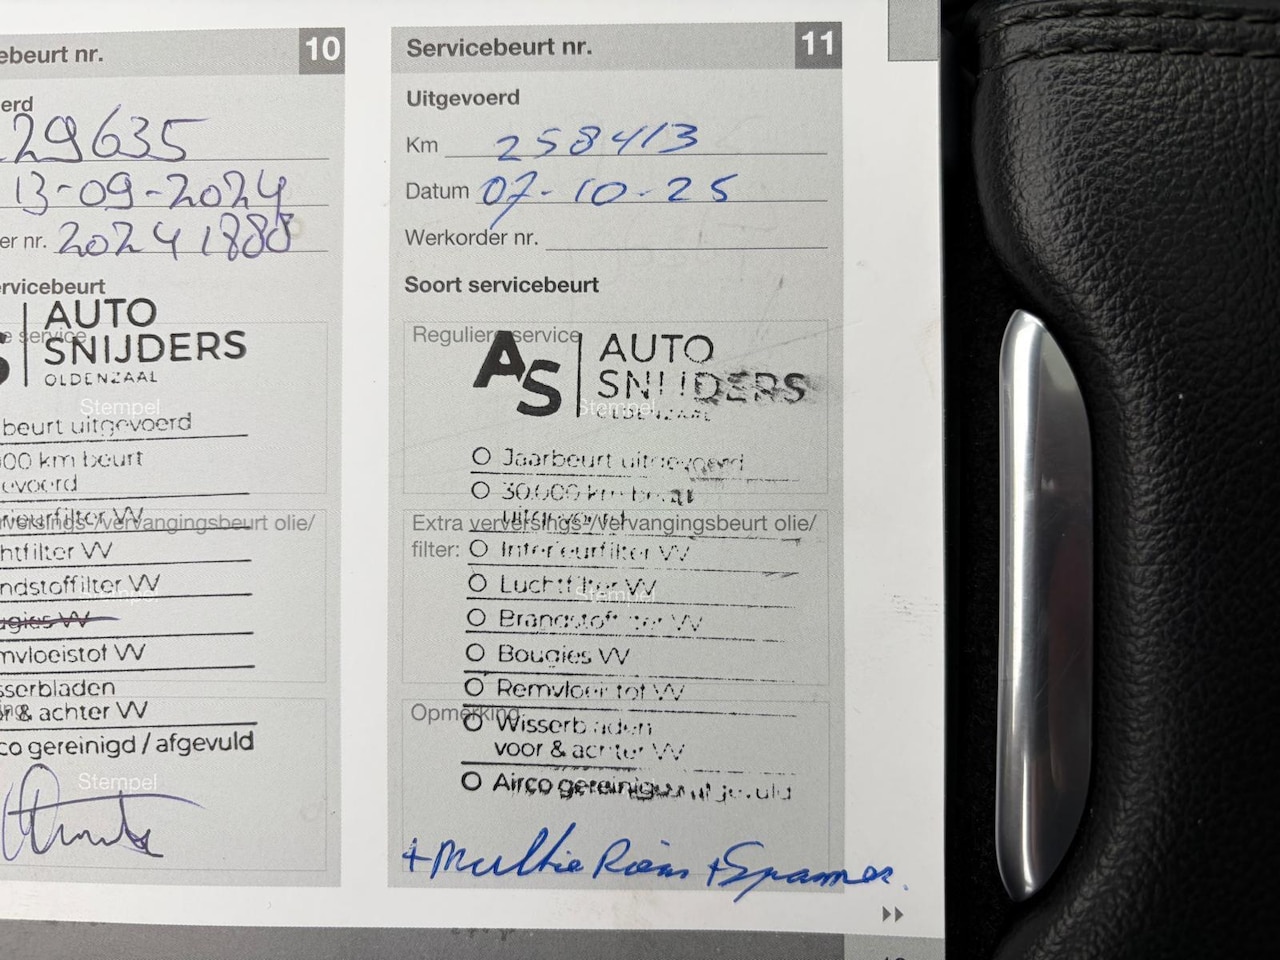 ebeurt nr. 10
erd
29635
13-09-2024
er nr. 20241888
rvicebeurt
e service
S AUTO
SNIJDERS
OLDENZAAL
Stempel
beurt uitgevoerd
00 km beurt
evoerd
rieurfilter VV
rversings-/vervangingsbeurt olie/
htfilter VV
ndstoffilter VV
Stempel
ugies VV
mvloeistof VV
sserbladen
ng
r & achter VV
co gereinigd / afgevuld
Stempel
Servicebeurt nr. 11
Uitgevoerd
Km 258413
Datum 07-10-25
Werkorder nr.
Soort servicebeurt
Reguliere service
AS AUTO
SNIJDERS
OLDENZAAL
Stempel
Jaarbeurt uitgevoerd
30.000 km beurt
uitgevoerd
Extra verversings-/vervangingsbeurt olie/
filter:
Interieurfilter VV
Luchtfilter VV
Stempel
Brandstoffilter VV
Bougies VV
Remvloeistof VV
Opmerking
Wisserbladen
voor & achter VV
Airco gereinigd / afgevuld
+ Multie Riem + Spanner.